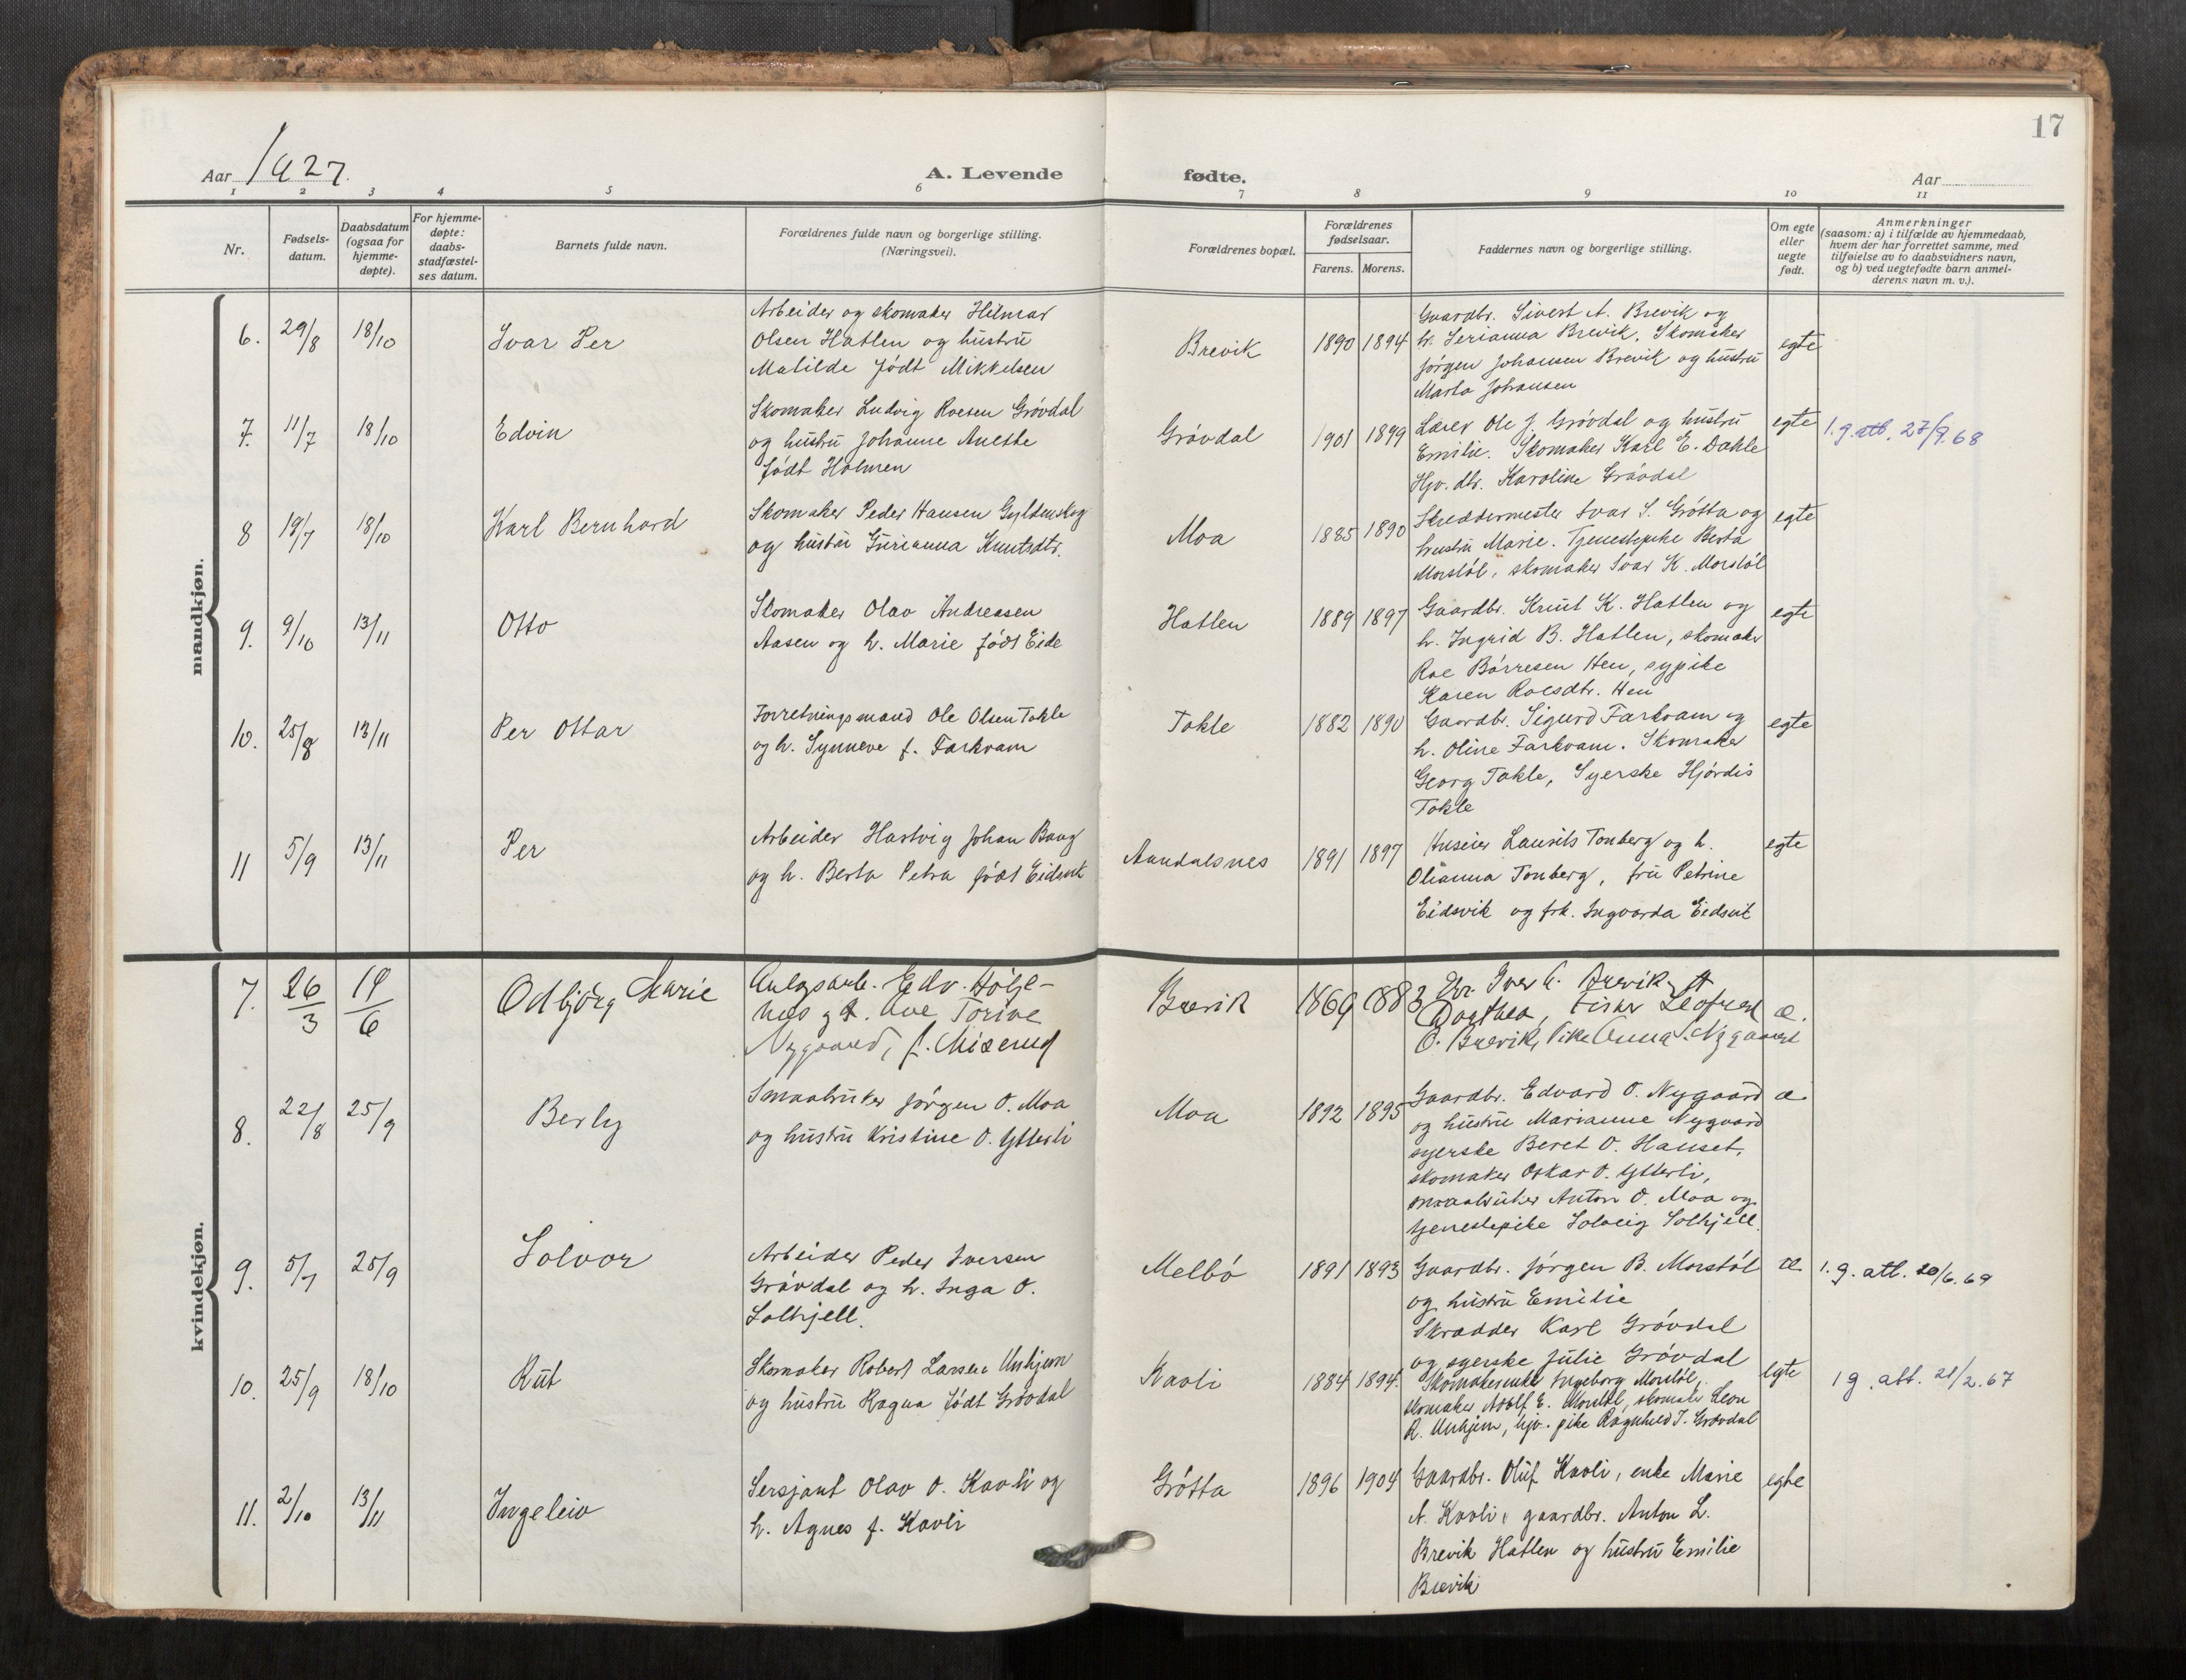 17
Aar 1927.
A. Levende fødte.
Aar
1 2 3 4 5 6 7 8 9 10 11
Nr.
Fødsels-
datum.
Daabsdatum
(ogsaa for
hjemme-
døpte).
For hjemme-
døpte:
daabs-
stadfæstel-
ses datum.
Barnets fulde navn.
Forældrenes fulde navn og borgerlige stilling.
(Næringsvei).
Forældrenes bopæl.
Forældrenes
fødselsaar.
Farens. Morens.
Faddernes navn og borgerlige stilling.
Om egte
eller
uegte
født.
Anmerkninger
(saasom: a) i tilfælde av hjemmedaab,
hvem der har forrettet samme, med
tilføielse av to daabsvidners navn,
og b) ved uegtefødte barn anmel-
derens navn m. v.).
mandkjøn.
6. 29/8 18/10 Ivar Per
Arbeider og skomaker Hilmar
Olsen Hatlen og hustru
Matilde født Mikkelsen
Brevik 1890 1894
Gaardbr. Sivert A. Brevik og
h. Serianna Brevik. Skomaker
Jørgen Johansen Brevik og hustru
Marta Johansen
egte
7. 11/7 18/10 Edvin
Skomaker Ludvig Roesen Grøvdal
og hustru Johanne Anette
født Holmen
Grøvdal 1901 1899
Lærer Ole J. Grøvdal og hustru
Emilie. Skomaker Karl E. Dahle
Hjv. dtr. Karoline Grøvdal
egte
1.g.att. 27/9.68
8 19/7 18/10 Karl Bernhard
Skomaker Peder Hansen Gyldenskog
og hustru Gurianna Knutsdtr.
Moa 1885 1890
Skreddermester Ivar S. Grøtta og
hustru Marie. Tjenestepike Berta
Morstøl, skomaker Ivar K. Morstøl
egte
9. 9/10 13/11 Otto
Skomaker Olav Andreasen
Aasen og h. Marie født Eide
Hatlen 1889 1897
Gaardbr. Knut K. Hatlen og
h. Ingrid B. Hatlen, skomaker
Roe Børresen Hen, sypike
Karen Roesdtr. Hen
egte
10. 25/8 13/11 Per Ottar
Forretningsmand Ole Olsen Tokle
og h. Synneve f. Farkvam
Tokle 1882 1890
Gaardbr. Sigurd Farkvam og
h. Oline Farkvam. Skomaker
Georg Tokle, Syerske Hjørdis
Tokle
egte
11 5/9 13/11 Per
Arbeider Hartvig Johan Baug
og h. Berta Petra født Eidsvik
Aandalsnes 1891 1897
Huseier Laurits Tonberg og h.
Olianna Tonberg, fru Petrine
Eidsvik og frk. Ingvarda Eidsvik
egte
kvindekjøn.
7. 26/3 19/6 Odbjørg Marie
Anlgsarb. Edv. Hølje-
nes og h. Ave Torine
Nygaard, f.
Brevik 1869 1883
Iver A. Brevik, h
Dorthea, Fisker
O. Brevik, Pike Anna S. Nygaard
æ.
8. 22/8 25/9 Berly
Smaabruker Jørgen O. Moa
og hustru Kristine O. Ytterli
Moa 1892 1895
Gaardbr. Edvard O. Nygaard
og hustru Marianne Nygaard
syerske Beret O. Hanset,
skomaker Oskar O. Ytterli,
smaabruker Anton O. Moa og
tjenestepike Solveig Solhjell.
æ
9. 5/7 25/9 Solvor
Arbeider Peder Iversen
Grøvdal og h. Inga O.
Solhjell.
Melbø 1891 1893
Gaardbr. Jørgen B. Morstøl
og hustru Emilie
Skrædder Karl Grøvdal
og syerske Julie Grøvdal
æ
1.g. att. 20/6.69
10. 25/9 18/10 Rut
Skomaker Robert Larsen Unhjem
og hustru Ragna født Grøvdal
Kavli 1884 1894.
Skomakerenke Ingeborg Morstøl,
skomaker Adolf E. Morstøl, skomaker Leon
R. Unhjem, hjv. pike Ragnhild J. Grøvdal
egte
1 g. att. 21/2.67
11. 2/10 13/11 Ingeleiv
Sersjant Olav O. Kavli og
h. Agnes f. Kavli
Grøtta 1896 1904
Gaardbr. Oluf Kavli, enke Marie
A. Kavli, gaardbr. Anton L.
Brevik Hatlen og hustru Emilie
Brevik
egte